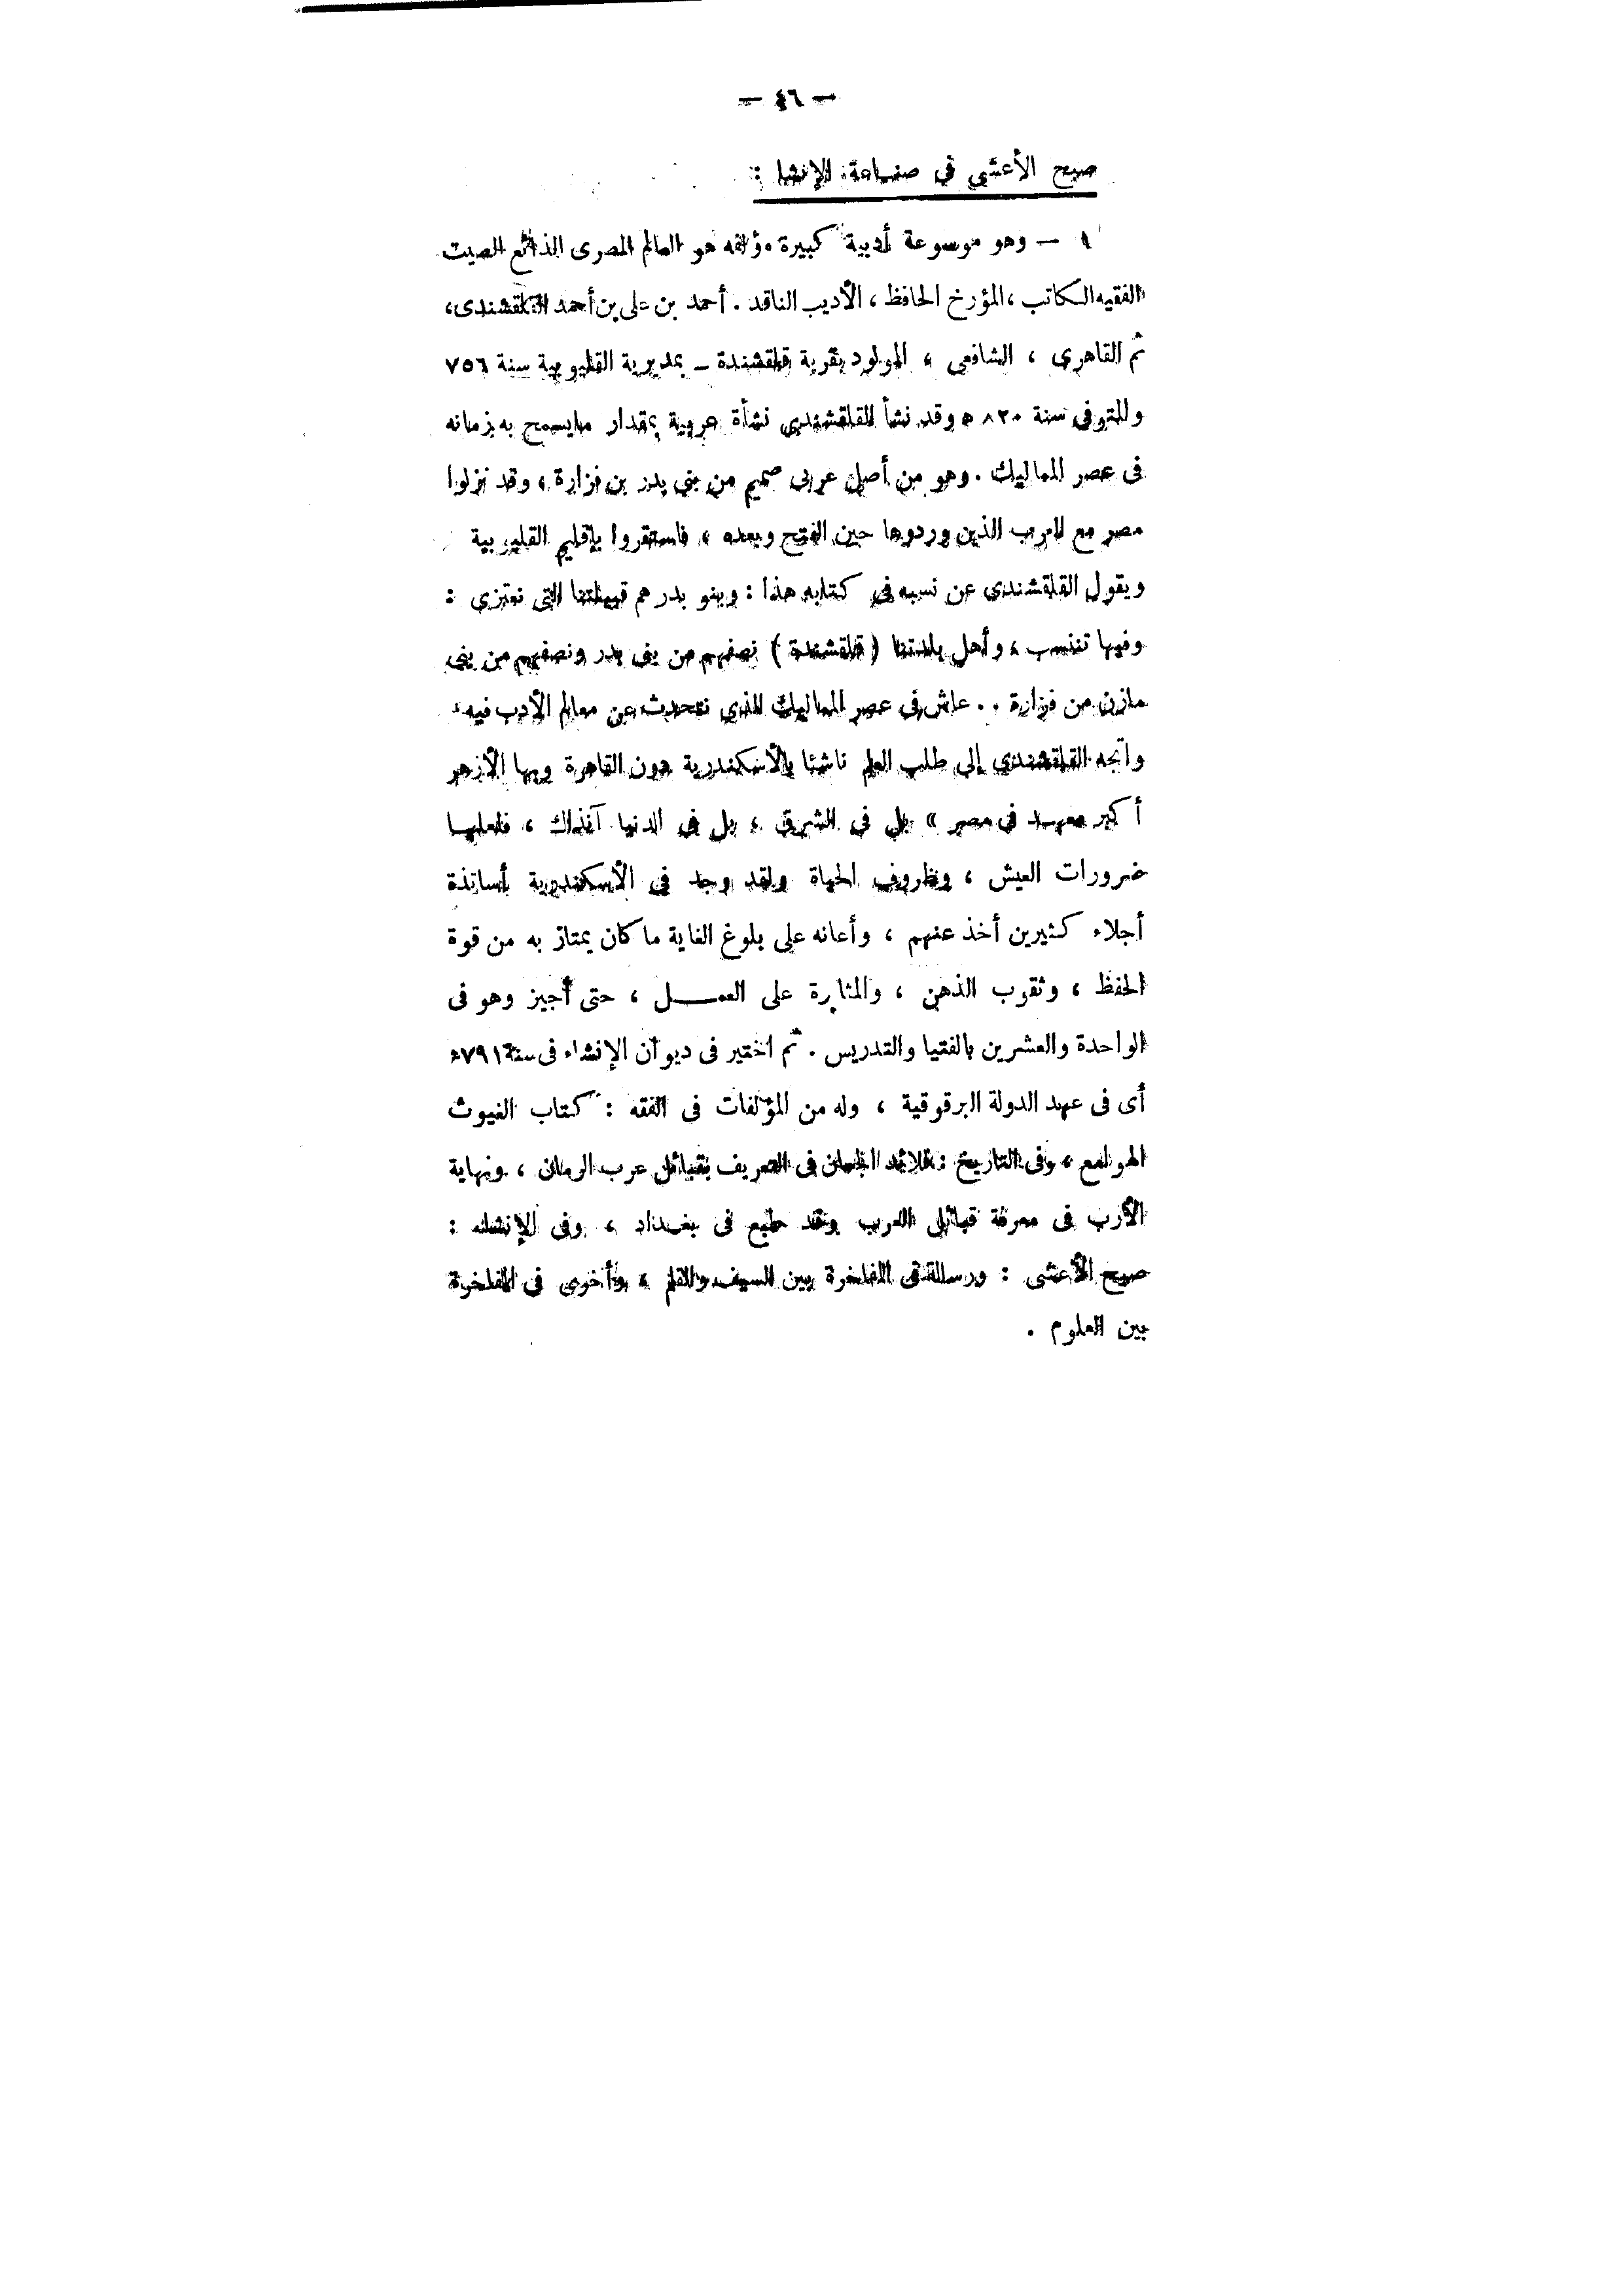 — ٤٦ —
صبح الأعشى فى صناعة الإنشا :
١ — وهو موسوعة أدبية كبيرة مؤلفه هو العالم المصرى الذائع الصيت
الفقيه الكاتب ، المؤرخ الحافظ ، الأديب الناقد . أحمد بن على بن أحمد القلقشندى ،
ثم القاهرى ، الشافعى ، المولود بقرية قلقشندة – بمديرية القليوبية سنة ٧٥٦
والمتوفى سنة ٨٢٠ ه وقد نشأ القلقشندى نشأة عربية بمقدار مايسمح به زمانه
فى عصر المماليك . وهو من أصل عربى صميم من بنى بدر بن فزارة ، وقد نزلوا
مصر مع العرب الذين وردوها حين الفتح وبعده ، فاستقروا بإقليم القليوبية
ويقول القلقشندى عن نسبه فى كتابه هذا : وبنو بدر هم قبيلتنا التى نعتزى :
وفيها ننتسب ، وأهل بلدتنا ( قلقشندة ) نصفهم من بنى بدر ونصفهم من بنى
مازن من فزارة . . عاش فى عصر المماليك الذى نتحدث عن معالم الأدب فيه
واتجه القلقشندى إلى طلب العلم ناشئا بالأسكندرية دون القاهرة وبها الأزهر
أكبر معهد فى مصر » بل فى الشرق ، بل فى الدنيا آنذاك ، فلعلها
ضرورات العيش ، وظروف الحياة ولقد وجد فى الأسكندرية أساتذة
أجلاء كثيرين أخذ عنهم ، وأعانه على بلوغ الغاية ما كان يمتاز به من قوة
الحفظ ، وثقوب الذهن ، والمثابرة على العمــل ، حتى أجيز وهو فى
الواحدة والعشرين بالفتيا والتدريس . ثم اختير فى ديوان الإنشاء فى سنة ٧٩١ه
أى فى عهد الدولة البرقوقية ، وله من المؤلفات فى الفقه : كتاب الغيوث
الهوامع ، وفى التاريخ : قلائد الجمان فى التعريف بقبائل عرب الزمان ، ونهاية
الأرب فى معرفة قبائل العرب وقد طبع فى بغداد ، وفى الإنشاء :
صبح الأعشى : ورسالة فى المفاخرة بين السيف والقلم ، وأخرى فى المفاخرة
بين العلوم .